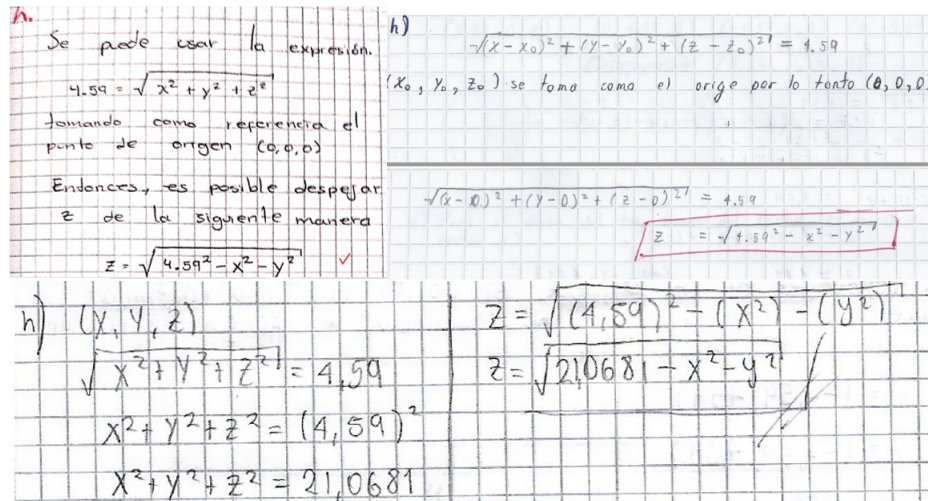 h.
Se puede usar la expresión.
4.59 = √x² + y² + z²
tomando como referencia el
punto de origen (0,0,0)
Entonces, es posible despejar
z de la siguiente manera
z = √4.59² - x² - y² ✓
h)
√(x - x₀)² + (y - y₀)² + (z - z₀)² = 4.59
(x₀, y₀, z₀) se toma como el orige por lo tanto (0, 0, 0)
√(x - 0)² + (y - 0)² + (z - 0)² = 4.59
z = √4.59² - x² - y²
h) (x, y, z)
√x² + y² + z² = 4,59
x² + y² + z² = (4,59)²
x² + y² + z² = 21,0681
z = √(4,59)² - (x²) - (y²)
z = √21,0681 - x² - y²